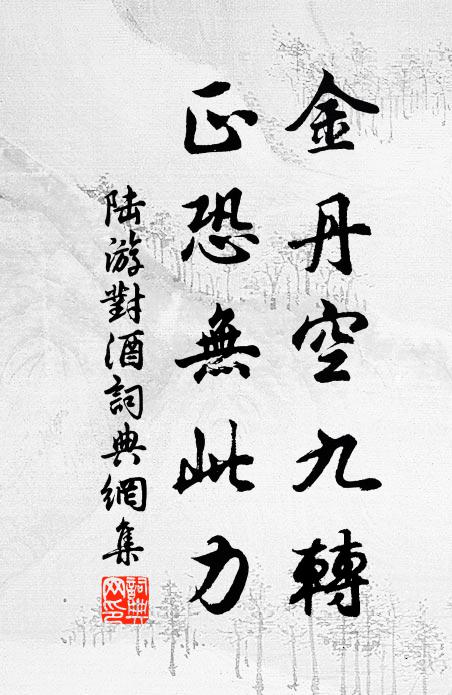 金丹空九轉
正恐無此力
陆游對酒詞典網集
詞典